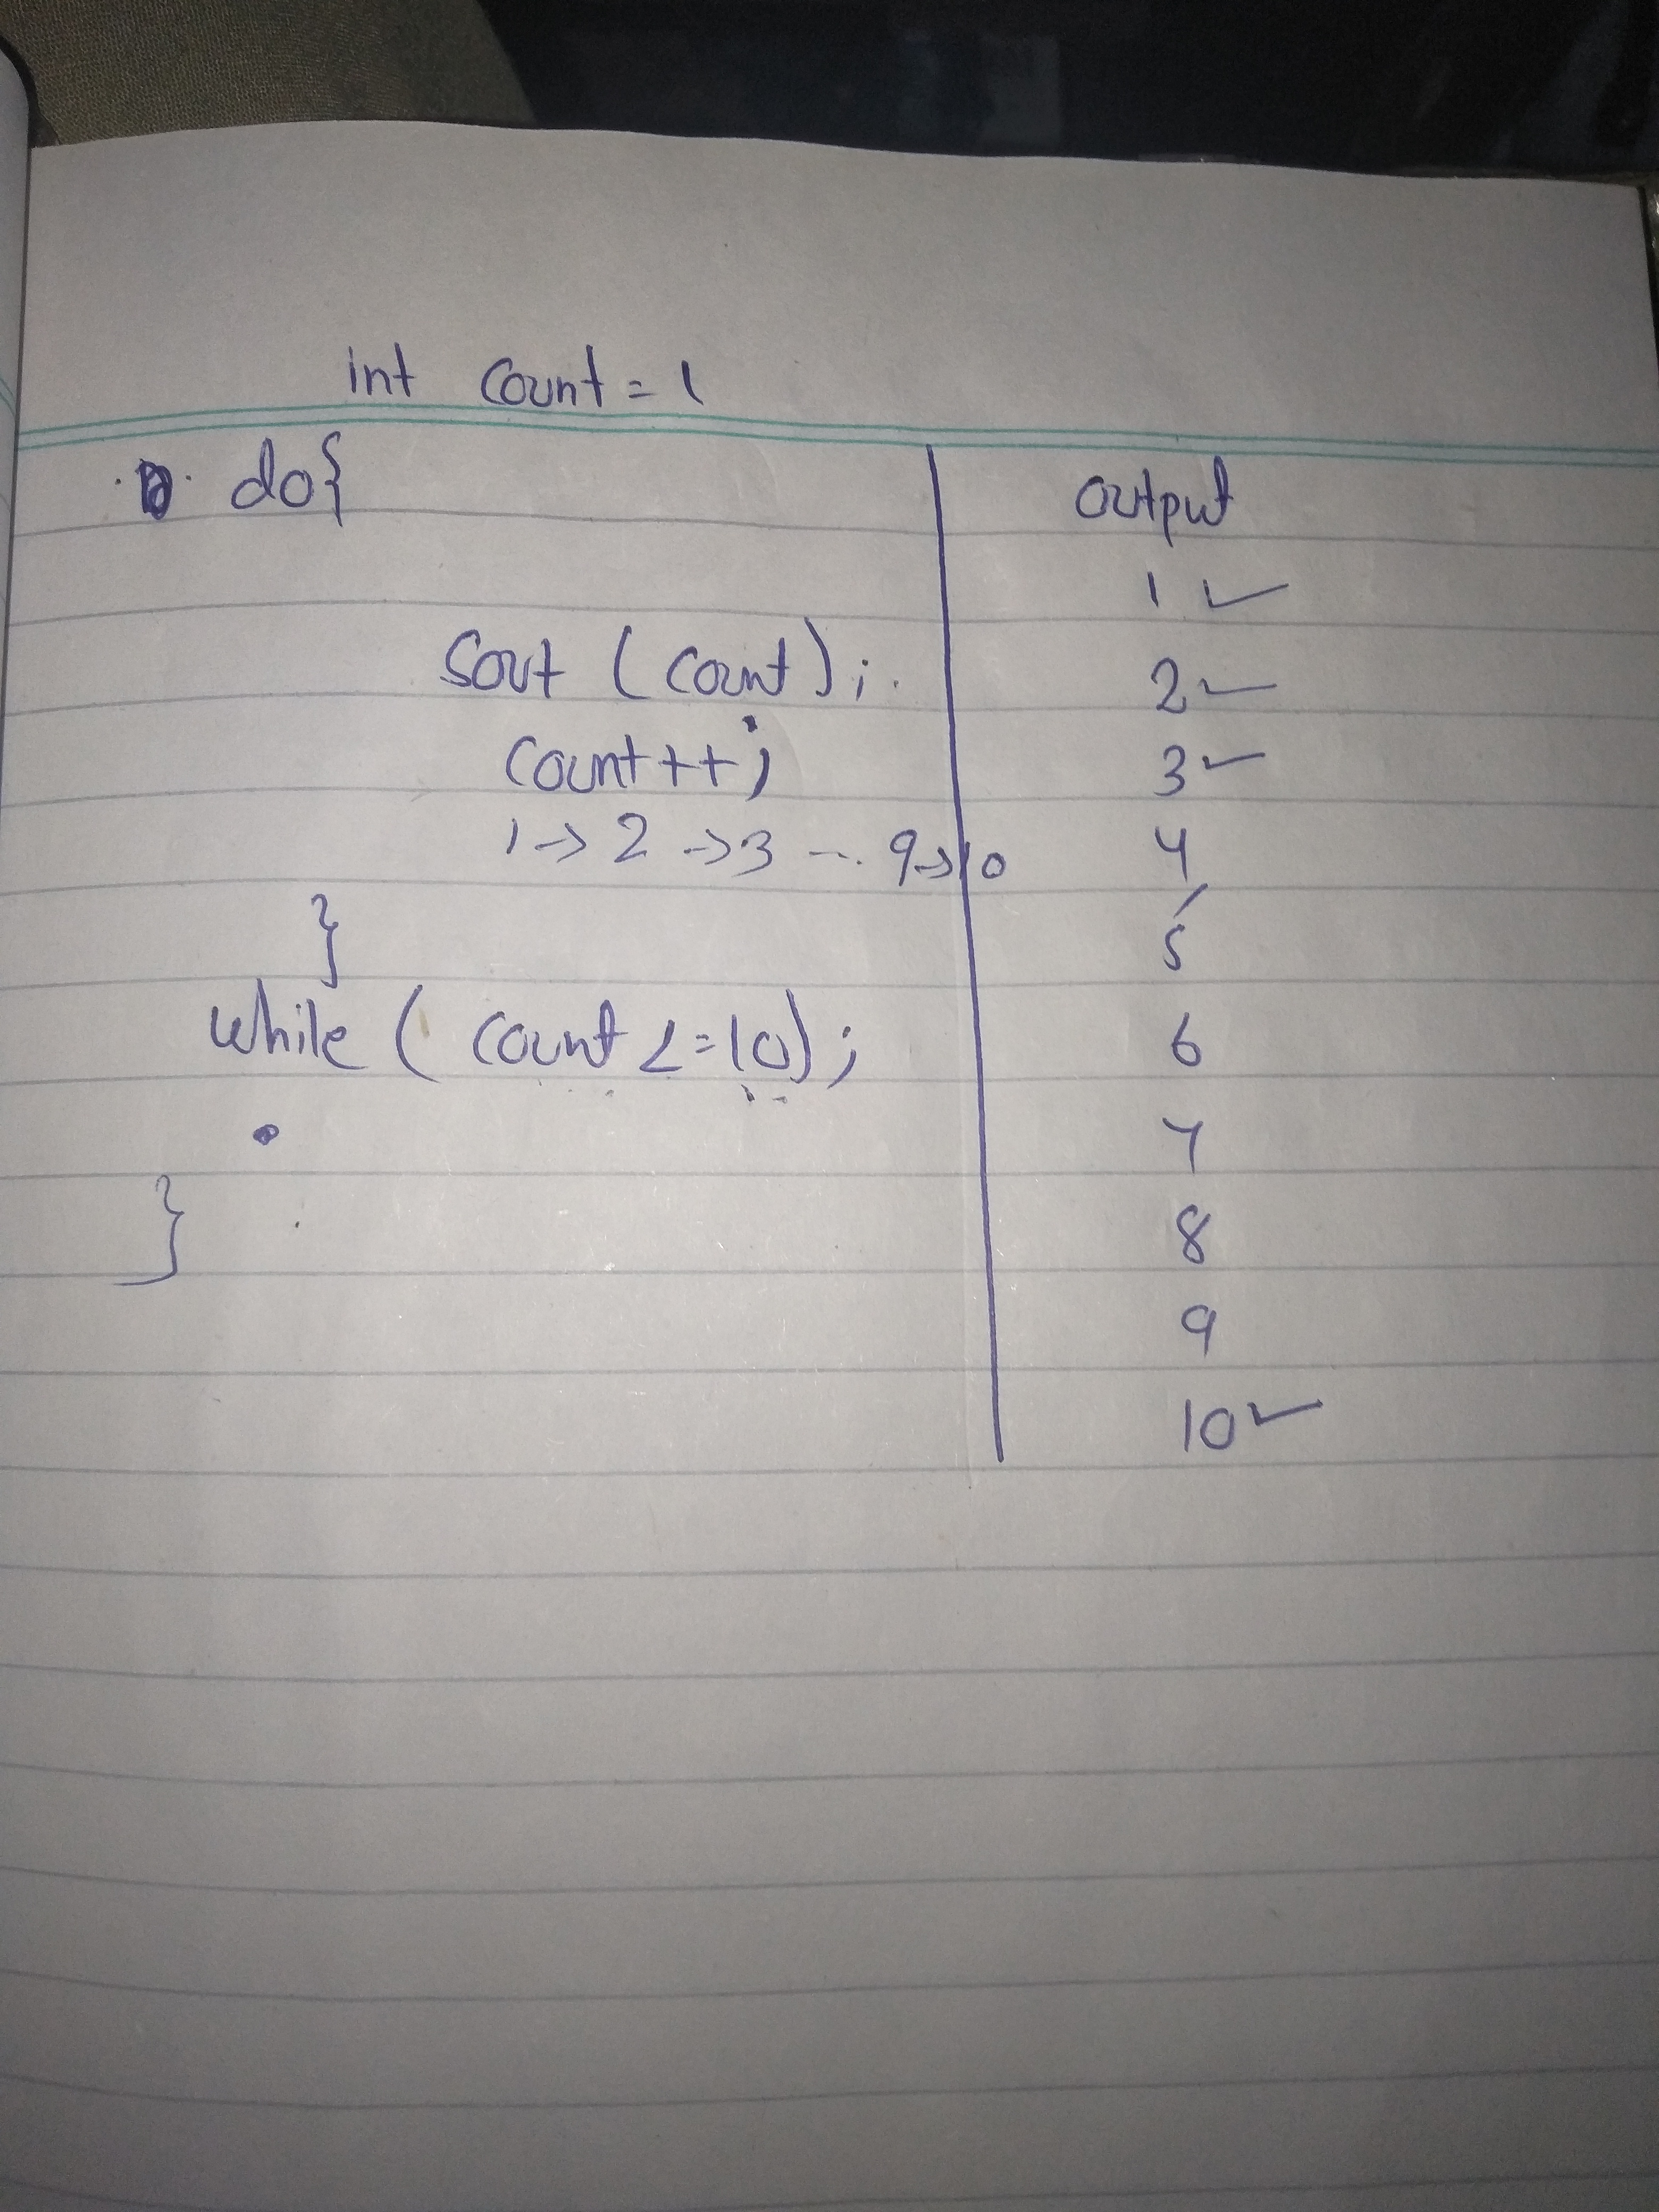 int count = 1
do{
sout (count);
count++;
1 -> 2 -> 3 --. 9->10
}
while ( count <=10);
}
output
1 ✓
2 ✓
3 ✓
4
5
6
7
8
9
10 ✓